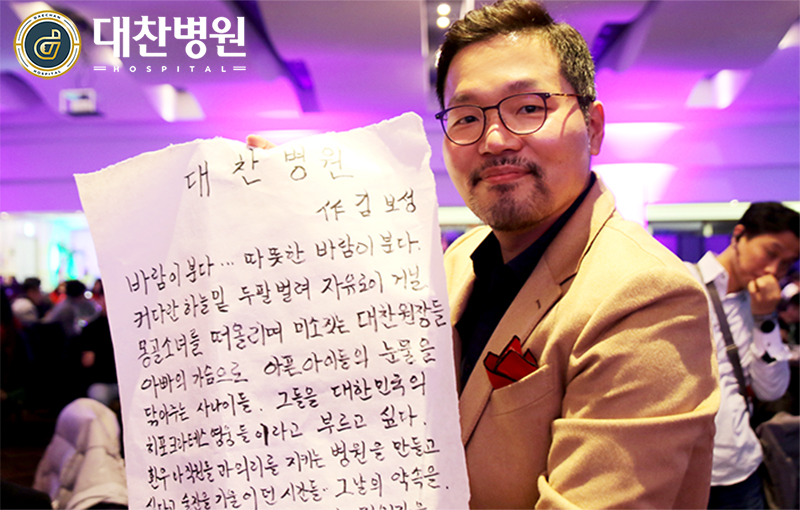 DAECHAN HOSPITAL
대찬병원
HOSPITAL
대찬병원
作 김보성
바람이 분다... 따뜻한 바람이 분다.
커다란 하늘 밑 두팔 벌려 자유로이 거닐
몽골소녀를 떠올리며 미소짓는 대찬원장들
아빠의 가슴으로 아픈 아이들의 눈물을
닦아주는 사나이들. 그들을 대한민국의
히포크라테스 영웅들이라고 부르고 싶다.
환우와 직원들과 의리를 지키는 병원을 만들고
술잔을 기울이던 시간들.. 그날의 약속을